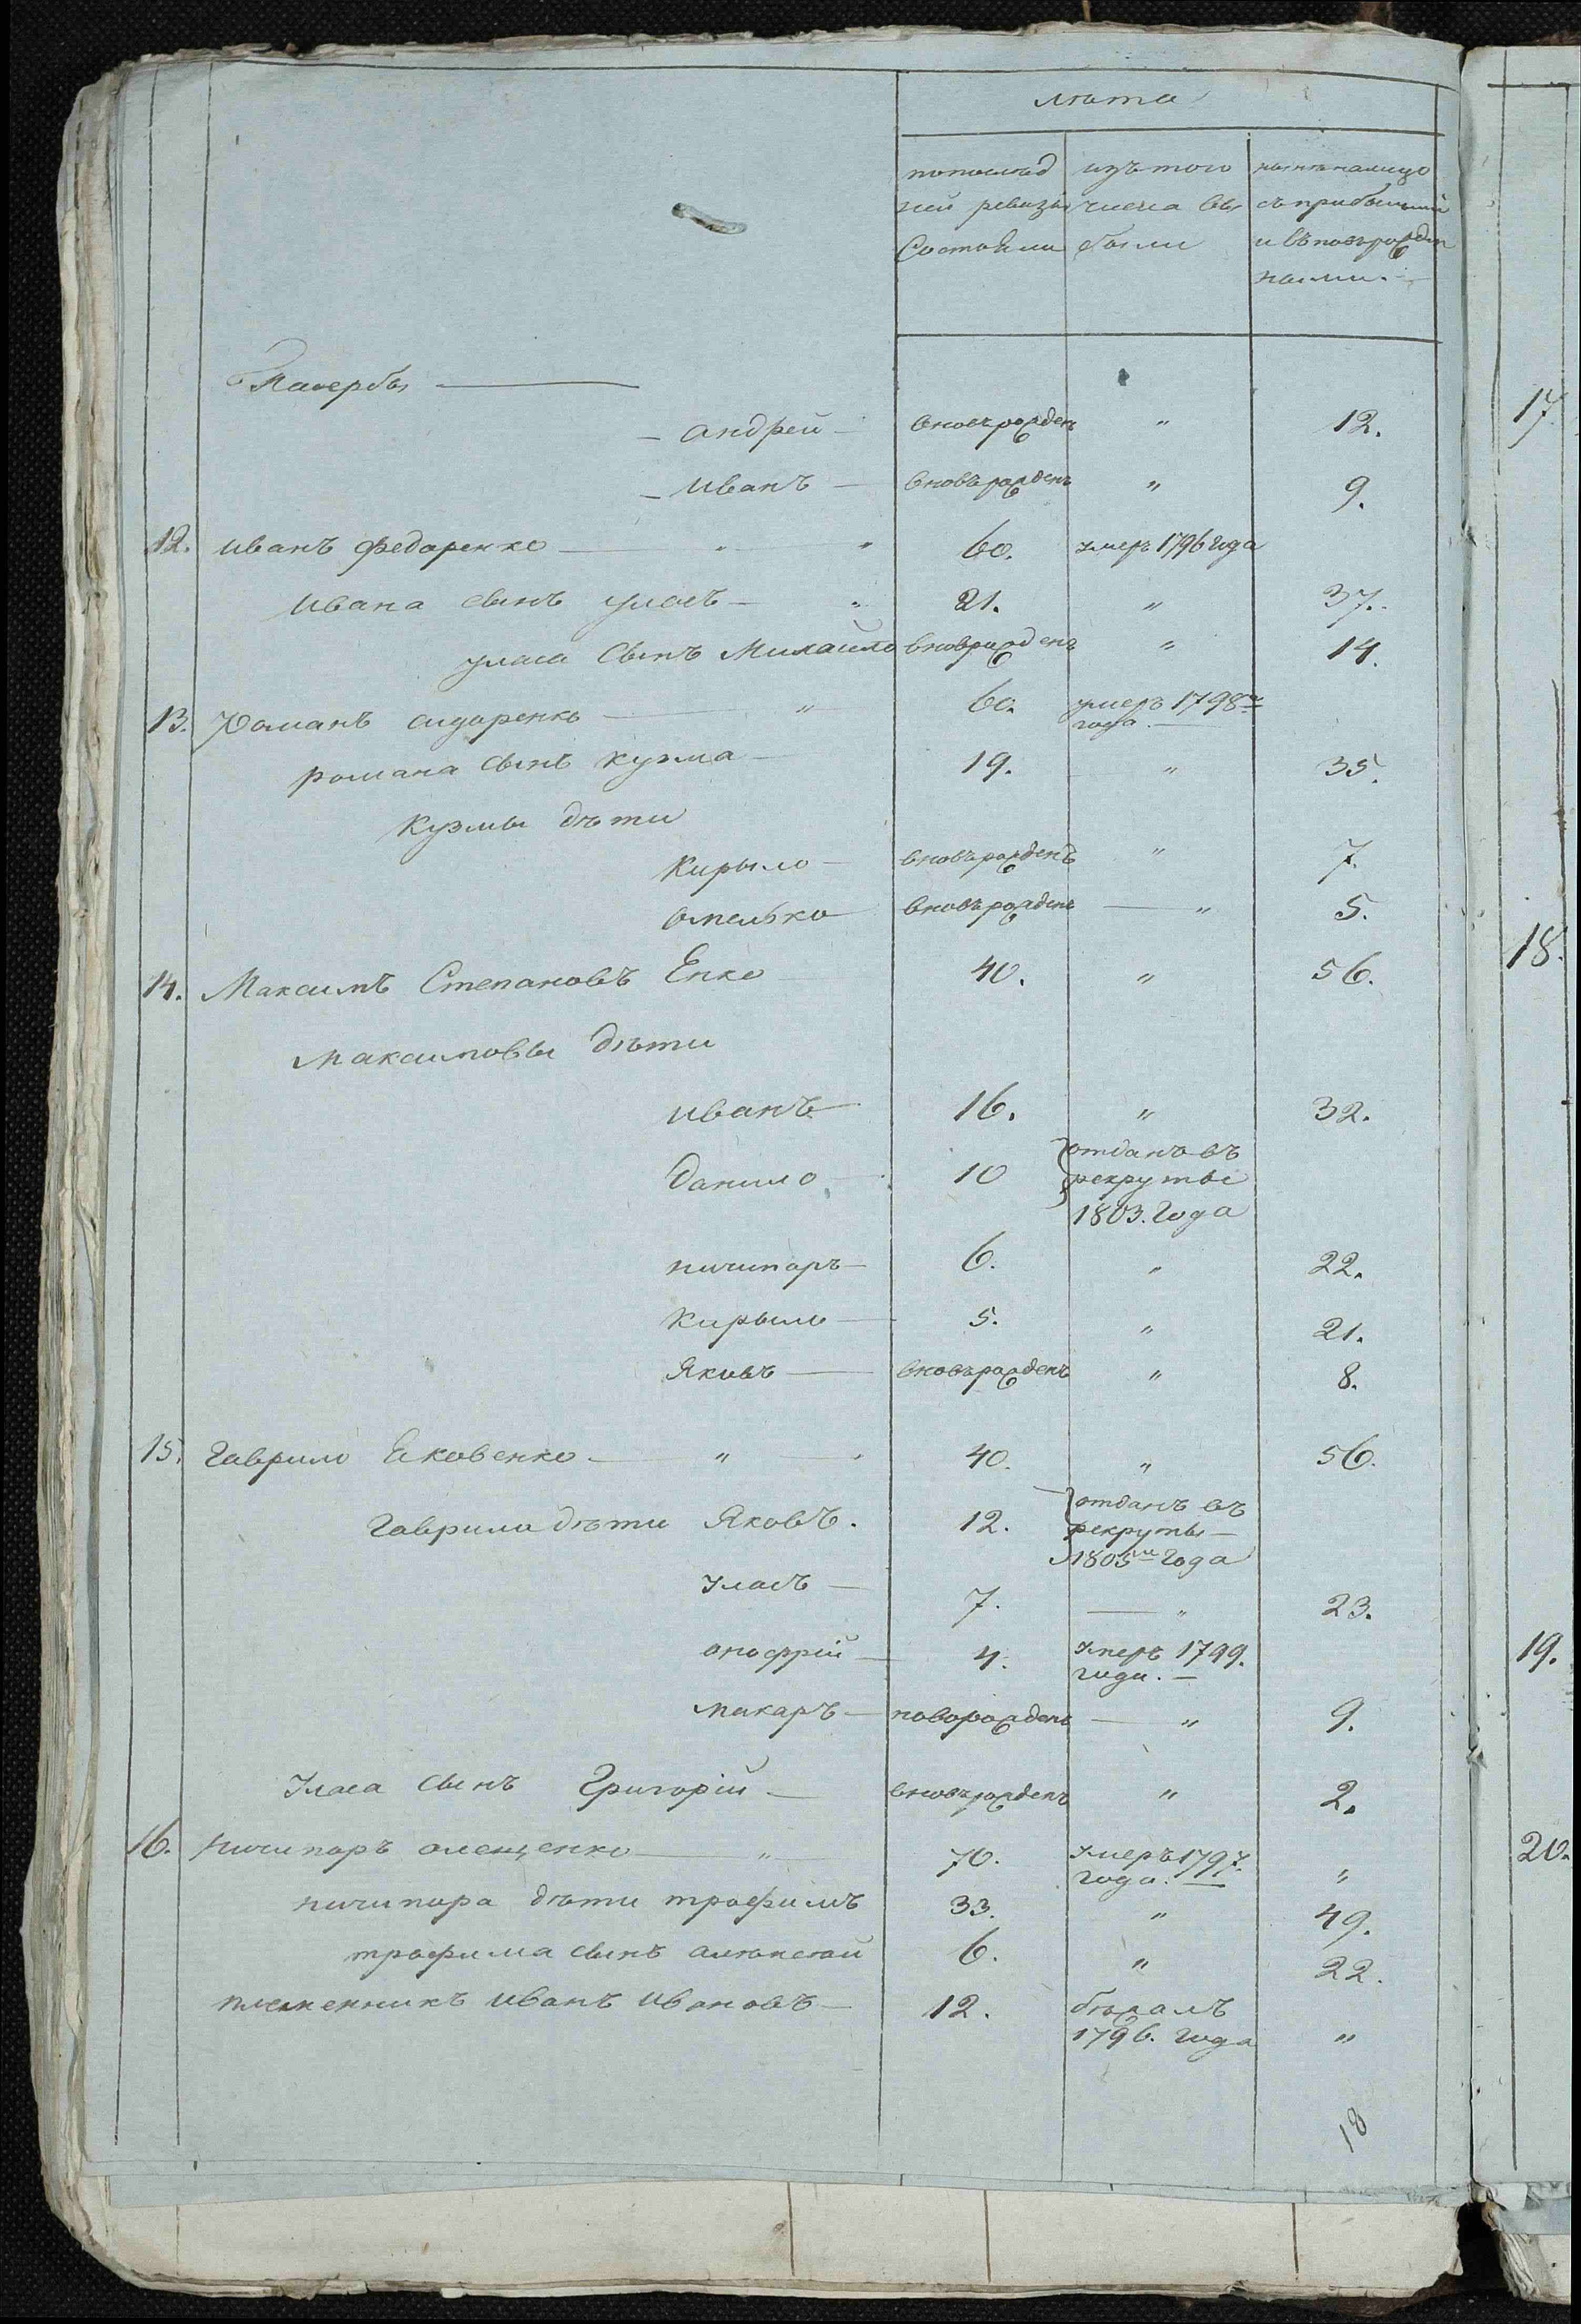 лѣта
попослѣд изътого нынѣналицо
ней ревизы числа вы съприбылими
Состояли были ивъновьрожден
ными.
Андрей вновьрожденъ " 12.
Иванъ вновьрожденъ " 9.
12. Иванъ Федоренко " " 60. умеръ 1796 года
Ивана сынъ уласъ " 21. " 37.
уласа сынъ Михайло вноврожденъ " 14.
13. Романъ сидоренко " 60. умеръ 1798го
года.
романа сынъ кузма 19. " 35.
Кузмы дѣти
Кирыло вновьрожденъ " 7.
Омелько вновьрожденъ " 5.
14. Максимъ Степановъ Енко 40. " 56.
Максимовы дѣти
Иванъ 16. " 32.
Данило 10 отданъ въ
рекруты
1803. Года
ничипоръ 6. " 22.
Кирыло 5. " 21.
Яковъ вновьрожденъ " 8.
15. Гаврило Яковенко " " 40. " 56.
Гаврила дѣти Яковъ. 12. отданъ въ
рекруты
1805го Года
Уласъ 7. " 23.
онофрій 4. умеръ 1799.
года.
макаръ новорожденъ " 9.
Уласа сынъ Григорій вновьрожденъ " 2.
16. Ничипоръ олещенко " 70. Умеръ 1797.
года. "
ничипора дѣти трофимъ 33. " 49.
трофима сынъ алѣксѣй 6. " 22.
племенникъ иванъ Ивановъ 12. бѣжалъ
1796. года "
18
17
18.
19.
20.